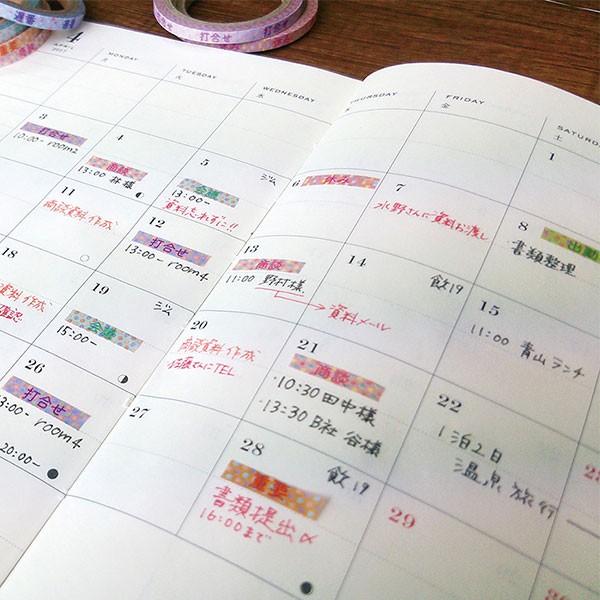 遅番
打合せ
4
APRIL
2017
MONDAY
月
TUESDAY
火
WEDNESDAY
水
THURSDAY
木
FRIDAY
金
SATURD
土
1
3
打合せ
10:00- room2
4
商談
13:00 林様
5
ジム
会議
13:00-
資料忘れずに!!
6
休み
7
水野さんに資料お渡し
8
出勤
書類整理
11
商談資料作成
12
打合せ
13:00- room4
13
商談
11:00 野村様
→資料メール
14
飲19
15
11:00 青山ランチ
18
資料作成
確認
19
ジム
会議
15:00-
20
商談資料作成
佐藤さんにTEL
21
商談
・10:30 田中様
・13:30 B社 谷様
22
1泊2日
温泉旅行
26
打合せ
13:00- room4
20:00-
27
28
飲19
重要
書類提出〆
16:00まで
29